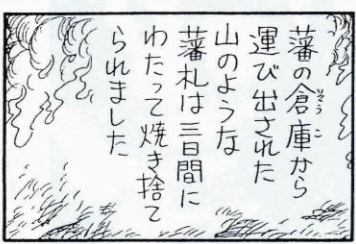 藩の倉庫から
運び出された
山のような
藩札は三日間に
わたって焼き捨て
られました